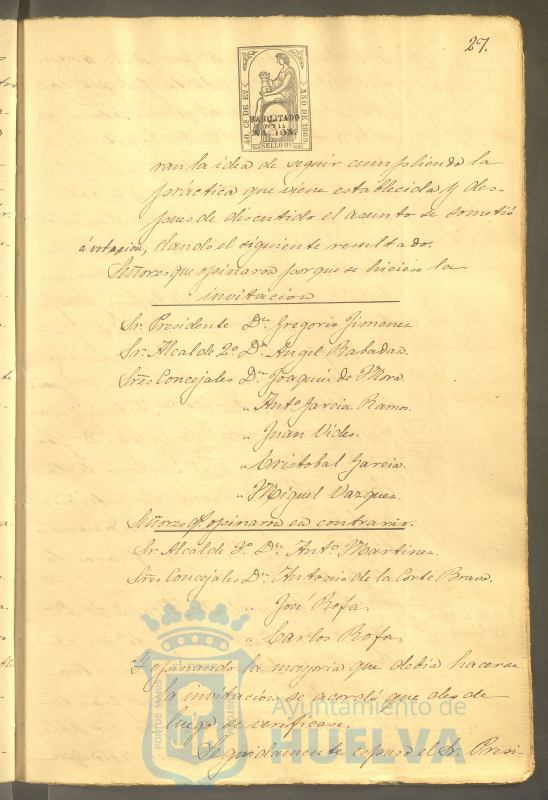 27.
40 Cs DE Eº
AÑO DE 1869.
HABILITADO
POR LA
NACION.
SELLO 9º
ran la idea de seguir cumpliendo la
práctica que viene establecida y des-
pues de discutido el asunto se sometió
á votacion, dando el siguiente resultado.
Señores que opinaron porque se hiciese la
invitacion
Sr. Presidente Dn. Gregorio Jimenez
Sr. Alcalde 2º Dn. Angel Rabadan.
Sres Concejales Dn. Joaquin de Mora.
" Antº Garcia Ramos.
" Juan Vides.
" Cristobal Garcia.
" Miguel Vazquez.
Señores q. opinaron en contrario.
Sr. Alcalde 3º Dn. Antº Martinez
Sres Concejales Dn. Antonio de la Corte Bravo.
" José Rofa.
" Carlos Rofa.
Y opinando la mayoria que debia hacerse
la invitacion se acordó que desde
luego se verificase.
Seguidamente espuso el Sr. Presi-
PORTUS MARIS
Ayuntamiento de
HUELVA